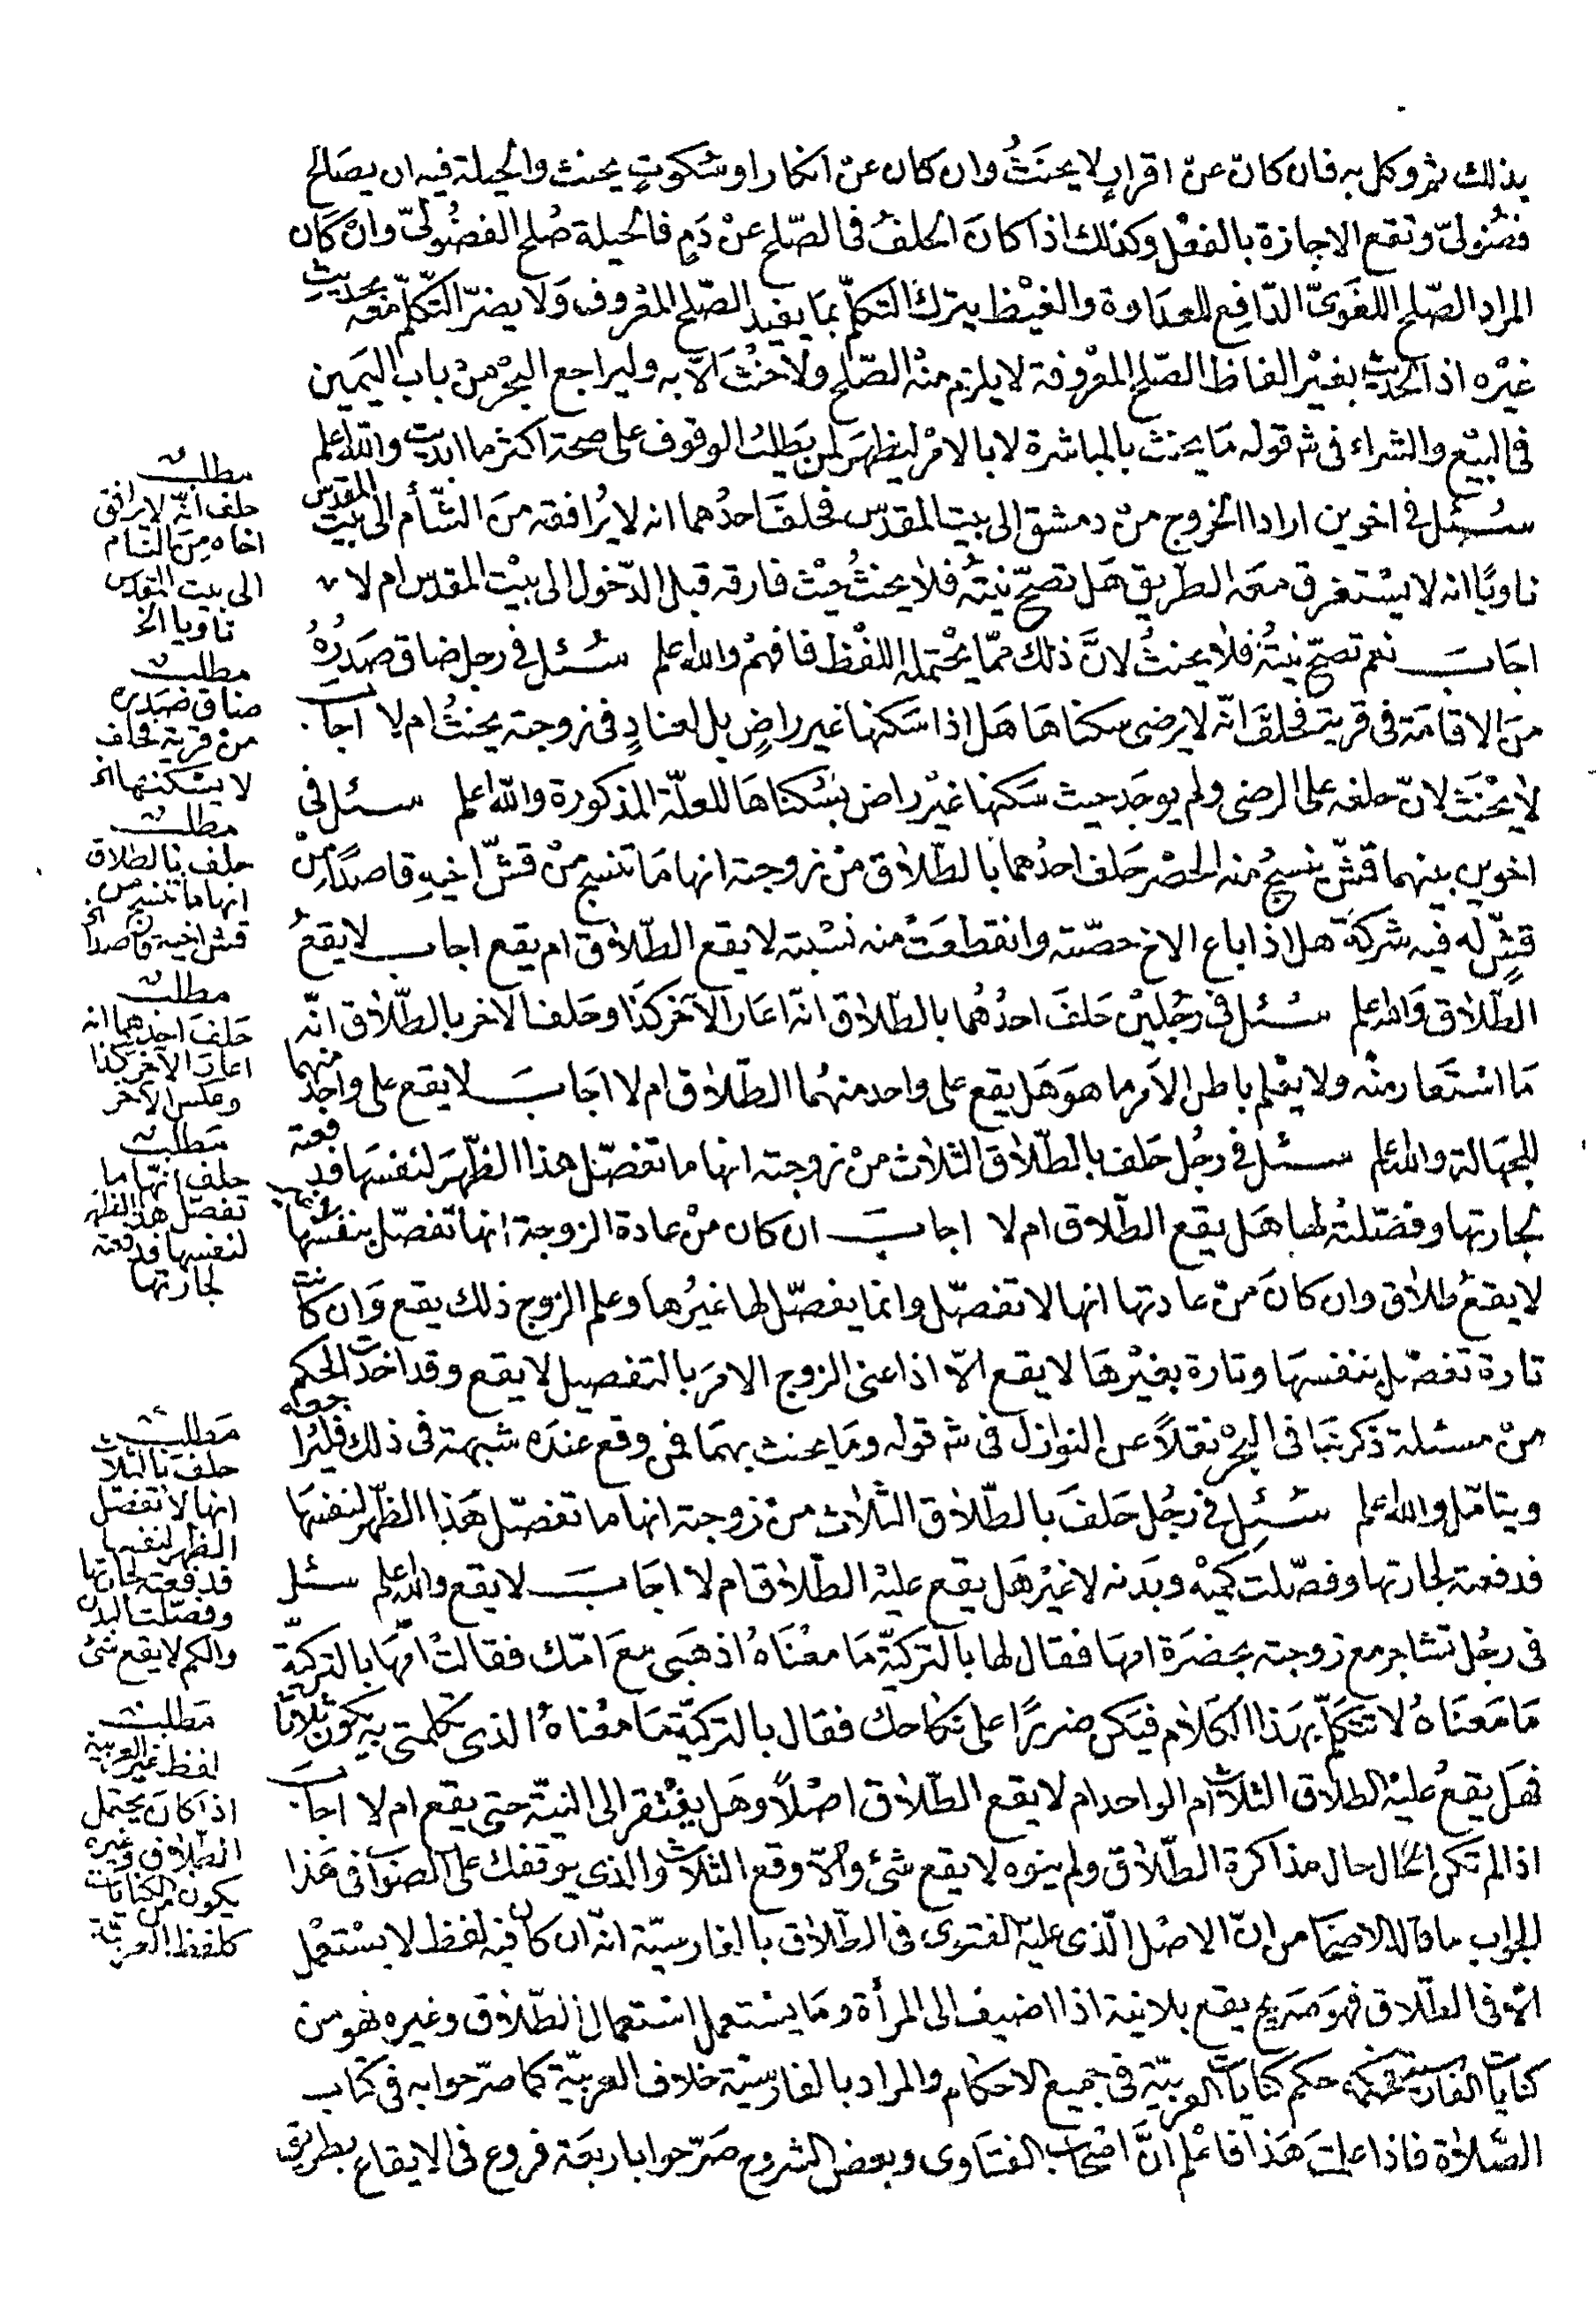 بذلك ثم وكل به فان كان عن اقرار لا يحنث وان كان عن انكار او سكوت يحنث والحيلة فيه ان يصالح
فضولي وتقع الاجازة بالفعل وكذلك اذا كان الحلف في الصلح عن دم فالحيلة صلح الفضولي وان كان
المراد الصلح اللغوي الدافع للعداوة والغيظ بترك التكلم بما يفيد الصلح المعروف ولا يضر التكلم معه بحديث
غيره اذ الحديث بغير الفاظ الصلح المعروفة لا يلزم منه الصلح ولا حنث الا به وليراجع البحر من باب اليمين
في البيع والشراء في شرح قوله ما يحنث بالمباشرة لا بالامر ليظهر لمن يطلب الوقوف على صحة اكثر ما ابديت والله اعلم
سئل في اخوين ارادا الخروج من دمشق الى بيت المقدس فحلف احدهما انه لا يرافقه من الشأم الى بيت المقدس
ناويا انه لا يستغرق معه الطريق هل تصح نيته فلا يحنث حيث فارقه قبل الدخول الى بيت المقدس ام لا
اجاب نعم تصح نيته فلا يحنث لان ذلك مما يحتمله اللفظ فافهم والله اعلم سئل في رجل ضاق صدره
من الاقامة في قرية فحلف انه لا يرضى سكناها هل اذا سكنها غير راض بل لعناد في زوجته يحنث ام لا اجاب
لا يحنث لان حلفه على الرضى ولم يوجد حيث سكنها غير راض بسكناها للعلة المذكورة والله اعلم سئل في
اخوين بينهما قش ينسج منه الحصر حلف احدهما بالطلاق من زوجته انها ما تنسج من قش اخيه قاصدا من
قش له فيه شركة هل اذا باع الاخ حصته وانقطعت منه نسبته لا يقع الطلاق ام يقع اجاب لا يقع
الطلاق والله اعلم سئل في رجلين حلف احدهما بالطلاق انه اعار الآخر كذا وحلف الاخر بالطلاق انه
ما استعار منه ولا يعلم باطن الامر ما هو هل يقع على واحد منهما الطلاق ام لا اجاب لا يقع على واحد منهما
للجهالة والله اعلم سئل في رجل حلف بالطلاق الثلاث من زوجته انها ما تفصل هذا الظهر لنفسها فدفعته
لجارتها وفصلته لها هل يقع الطلاق ام لا اجاب ان كان من عادة الزوجة انها تفصل بنفسها
لا يقع طلاق وان كان من عادتها انها لا تفصل وانما يفصل لها غيرها وعلم الزوج ذلك يقع وان كانت
تارة تفصل بنفسها وتارة بغيرها لا يقع الا اذا عنى الزوج الامر بالتفصيل لا يقع وقد اخذت الحكم
من مسئلة ذكرتها في البحر نقلا عن النوازل في شرح قوله وما يحنث بهما فمن وقع عنده شبهة في ذلك فليراجعه
ويتامل والله اعلم سئل في رجل حلف بالطلاق الثلاث من زوجته انها ما تفصل هذا الظهر لنفسها
فدفعته لجارتها وفصلت كميه وبدنه لا غير هل يقع عليه الطلاق ام لا اجاب لا يقع والله اعلم سئل
في رجل تشاجر مع زوجته بحضرة امها فقال لها بالتركية ما معناه اذهبي مع امك فقالت امها بالتركية
ما معناه لا تتكلم بهذا الكلام فيكن ضررا على نكاحك فقال بالتركية ما معناه الذي تكلمتي به يكون ثلاثا
فهل يقع عليه الطلاق الثلاث ام الواحد ام لا يقع الطلاق اصلا وهل يفتقر الى النية حتى يقع ام لا اجاب
اذا لم تكن الحال حال مذاكرة الطلاق ولم ينوه لا يقع شئ والا وقع الثلاث والذي يوقفك على الصواب في هذا
الجواب ما قاله من ان الاصل الذي عليه الفتوى في الطلاق بالفارسية انه ان كان فيه لفظ لا يستعمل
الا في الطلاق فهو صريح يقع بلا نية اذا اضيف الى المرأة وما يستعمل استعمال الطلاق وغيره فهو من
كنايات الفارسية فحكمه حكم كنايات العربية في جميع الاحكام والمراد بالفارسية خلاف العربية كما صرحوا به في كتاب
الصلاة فاذا علمت هذا فاعلم ان اصحاب الفتاوى وبعض الشروح صرحوا باربعة فروع في الايقاع بطريق
مطلب
حلف انه لا يرافق
اخاه من الشام
الى بيت المقدس
ناويا الخ
مطلب
ضاق صدره
من قرية فحلف
لا يسكنها الخ
مطلب
حلف بالطلاق
انها ما تنسج من
قش اخيه قاصدا الخ
مطلب
حلف احدهما انه
اعار الآخر كذا
وعكس الآخر
مطلب
حلف انها ما
تفصل هذا الظهر
لنفسها فدفعته
لجارتها
مطلب
حلف بالثلاث
انها لا تفصل
الظهر لنفسها
فدفعته لجارتها
وفصلت البدن
والكم لا يقع شئ
مطلب
لفظ غير العربية
اذا كان يحتمل
الطلاق وغيره
يكون من الكنايات
كلفظ العربية